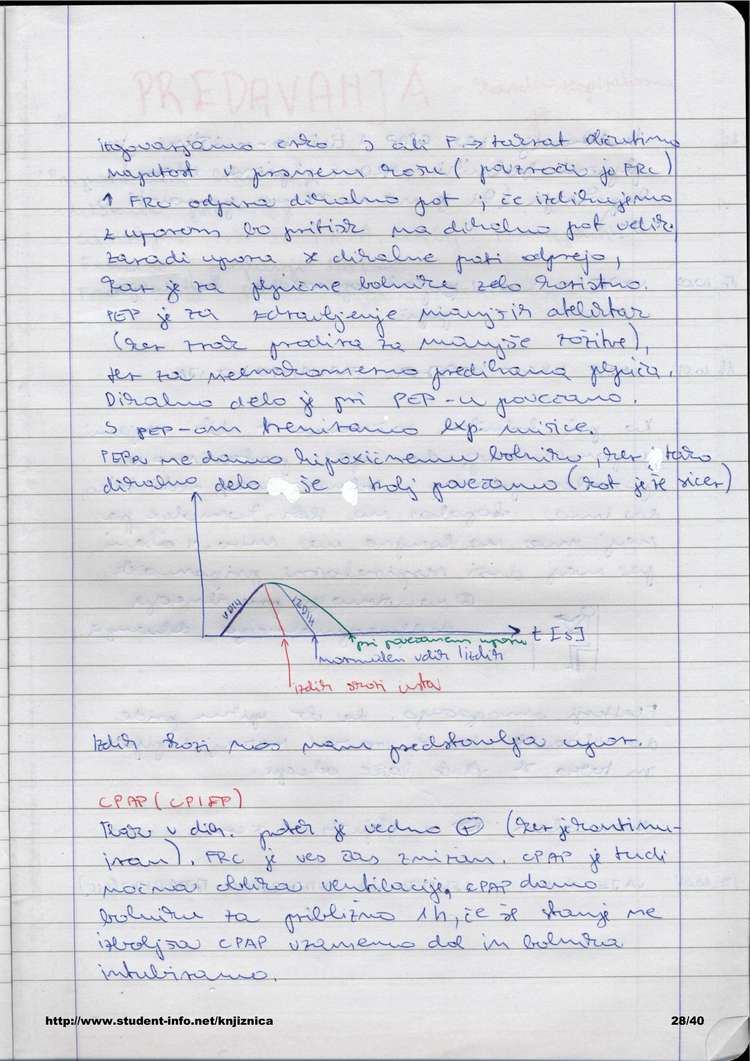 izgovarjamo črko S ali F → takrat občutimo
napetost v prsnem košu (povzroča jo FRC)
↑ FRC odpira dihalno pot ; če izdihujemo
z uporom bo pritisk na dihalno pot večji.
zaradi upora se dihalne poti odprejo,
kar je za pljučne bolnike zelo koristno.
PEP je za zdravljenje manjših atelektaz
(ker zrak prodira za manjše zožitve),
ter za neenakomerno predihana pljuča.
Dihalno delo je pri PEP-u povečano.
S PEP-om treniramo exp. mišice.
PEPa ne damo hipoksičnemu bolniku, ker tako
dihalno delo je bolj povečano (kot je že sicer)
VDIH
IZDIH
t [s]
pri povečanem uporu
normalen vdih / izdih
izdih skozi usta
Izdih skozi nos nam predstavlja upor.
CPAP (CPIFP)
Tlak v dih. poteh je vedno ⊕ (ker je kontinu-
iran). FRC je ves čas CPAP je tudi
nočna oblika ventilacije. CPAP damo
bolniku za približno 1h, če se stanje ne
izboljša CPAP vzamemo dol in bolnika
intubiramo.
http://www.student-info.net/knjiznica
28/40